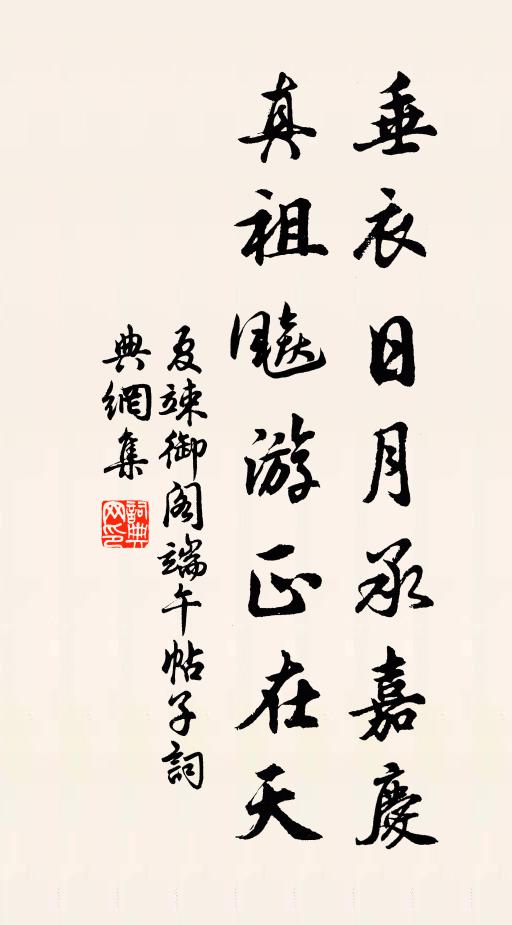 垂衣日月承嘉慶
真祖飈游正在天
夏竦御閣端午帖子詞
典網集
詞典網印